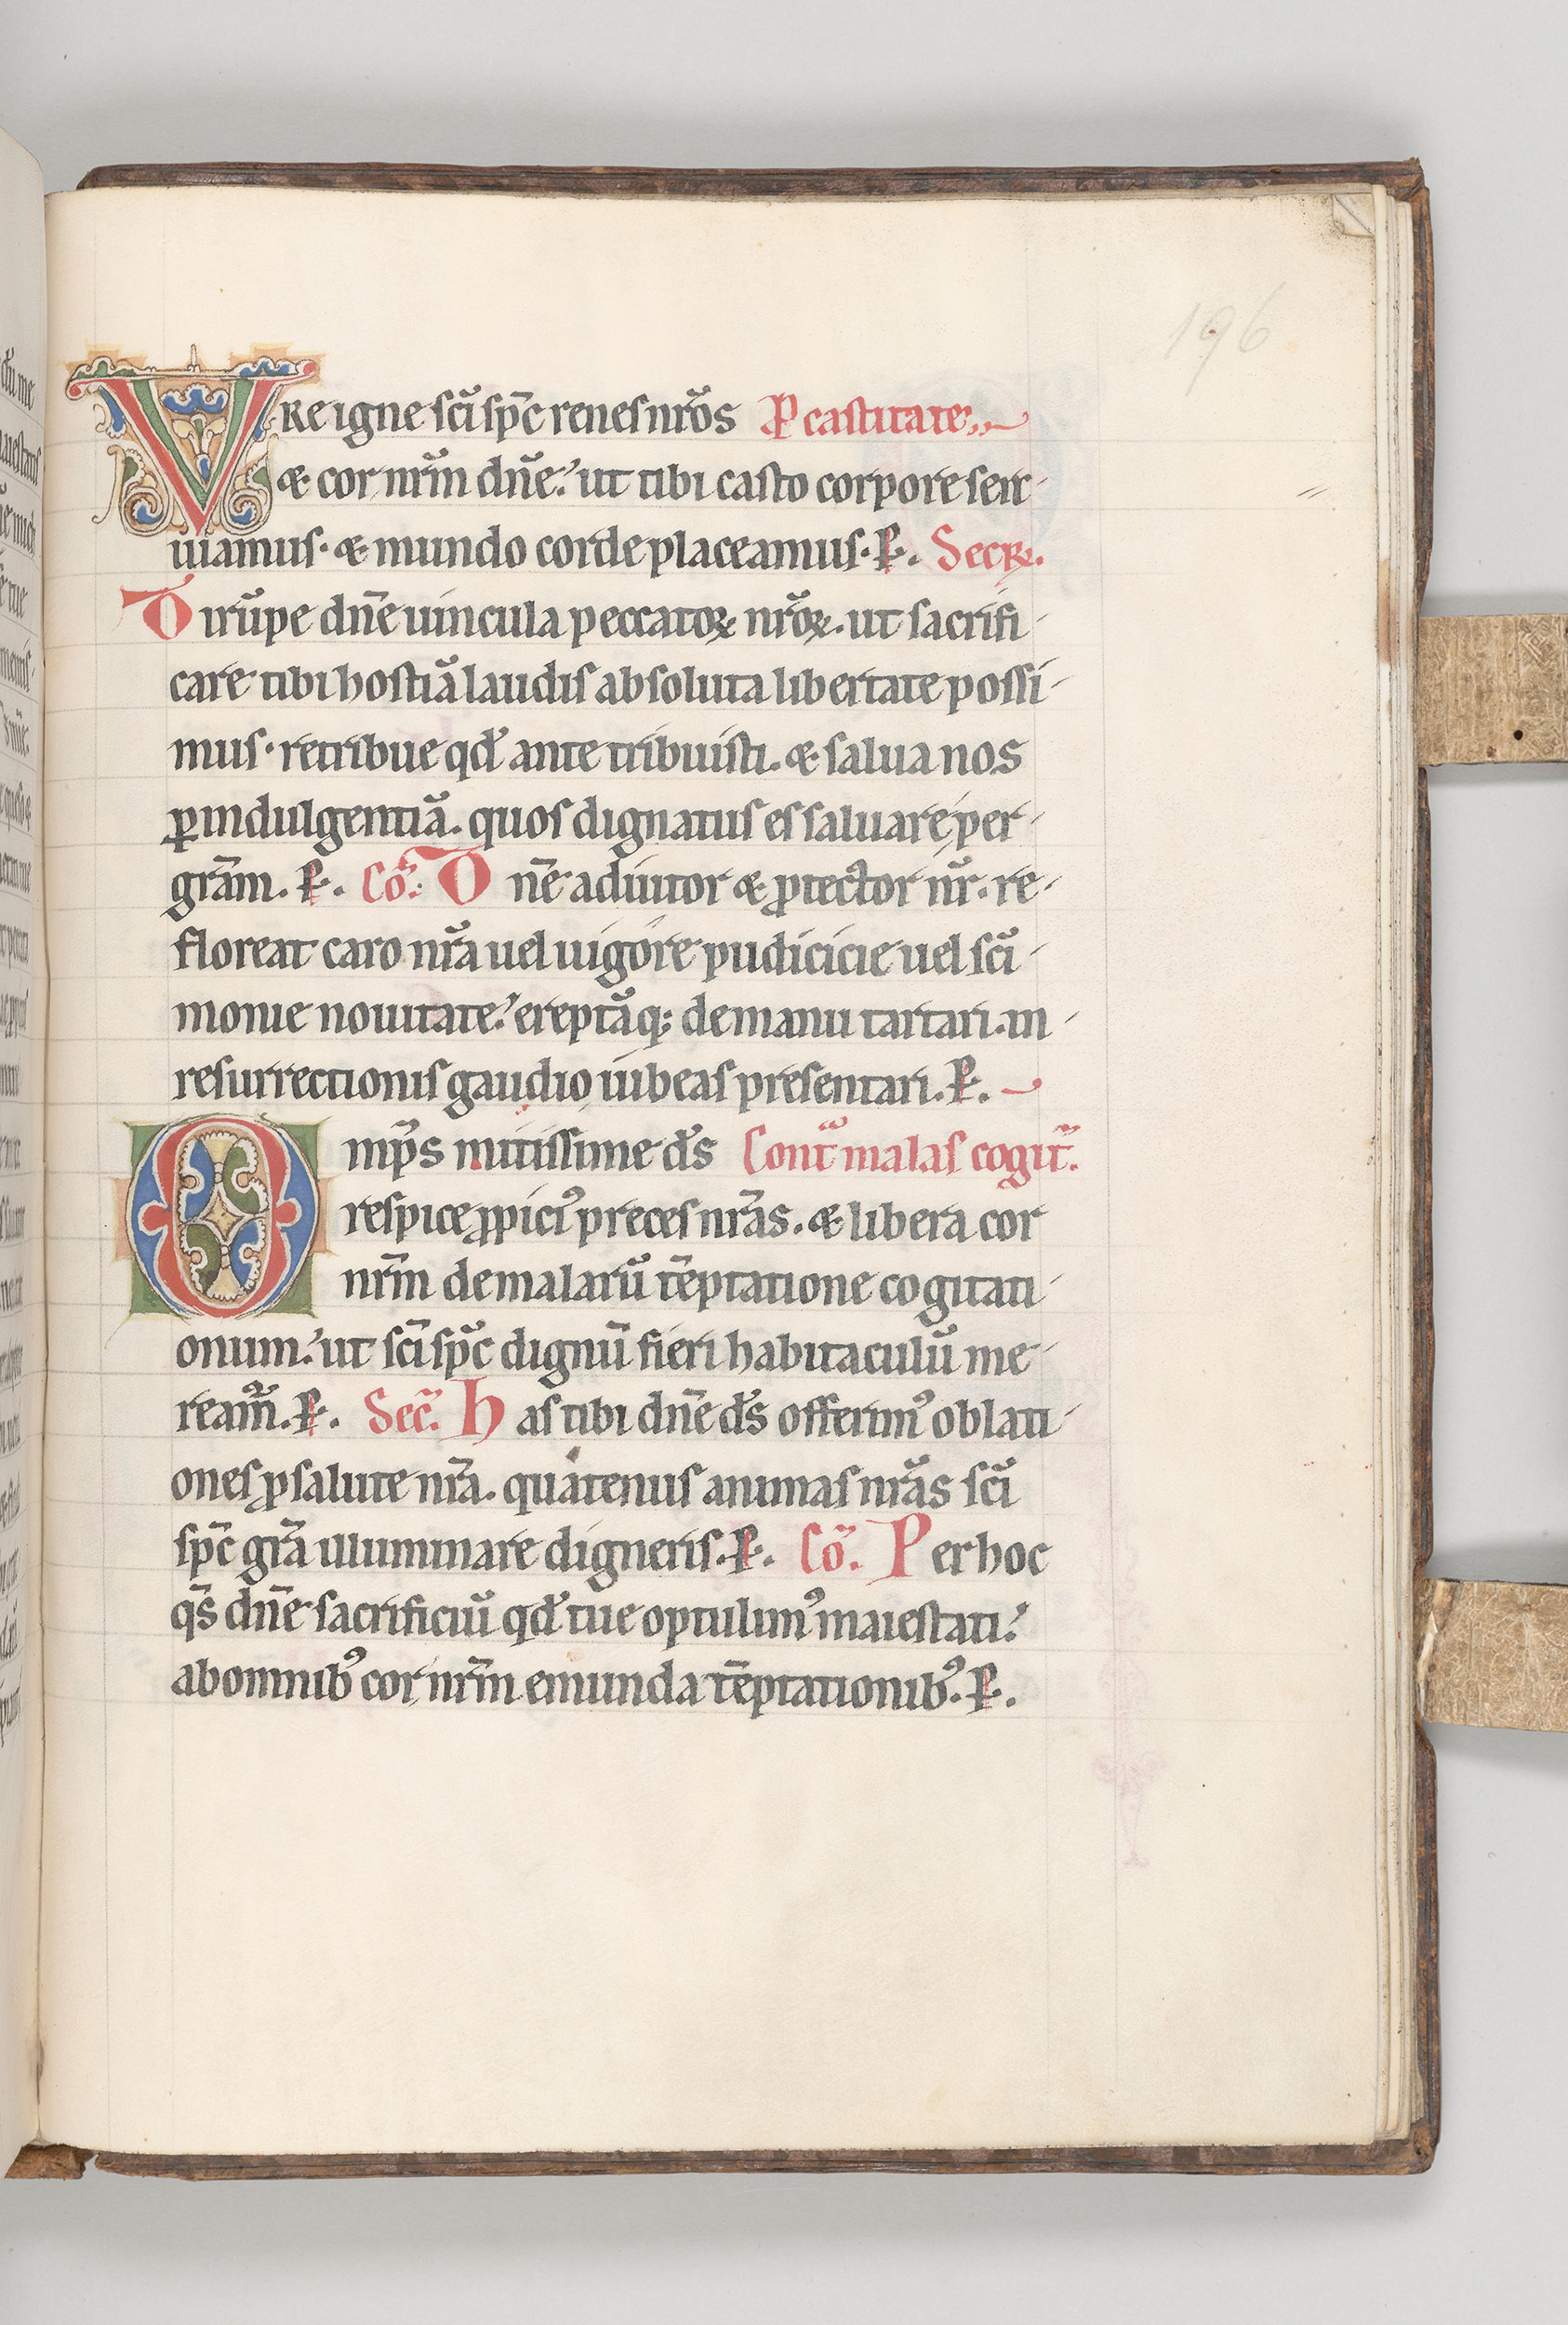 196
VRe igne sc̄i sp̄c renes nr̄os P castitate
& cor nr̄m dn̄e. ut tibi casto corpore serr-
uiamus. & mundo corde placeamus. P. Secꝝ.
Dirūpe dn̄e uincula peccatoꝝ nr̄oꝝ. ut sacrifi-
care tibi hostiā laudis absoluta libertate possi-
mus. retribue qd̄ ante tribuisti. & salua nos
ꝑ indulgentiā. quos dignatus es saluare per
gr̄am. P. Cō. Dn̄e adiutor & ꝓtector nr̄. re-
floreat caro nr̄a uel uigore pudicicie uel sc̄i-
monie nouitate. ereptāq; de manu tartari. in
resurrectionis gaudio iubeas presentari. P.
Omp̄s mitissime ds̄ Cont̄ malas cogit̄.
respice ꝓpiciꝰ preces nr̄as. & libera cor
nr̄m de malarū tēptatione cogitati-
onum. ut sc̄i sp̄c dignū fieri habitaculū me-
ream̄. P. Sec̄. Has tibi dn̄e ds̄ offerimꝰ oblati-
ones ꝓ salute nr̄a. quatenus animas nr̄as sc̄i
sp̄c gr̄a illuminare digneris. P. Cō. Per hoc
qs̄ dn̄e sacrificiū qd̄ tue optulimꝰ maiestati.
ab omnibꝰ cor nr̄m emunda tēptationibꝰ. P.